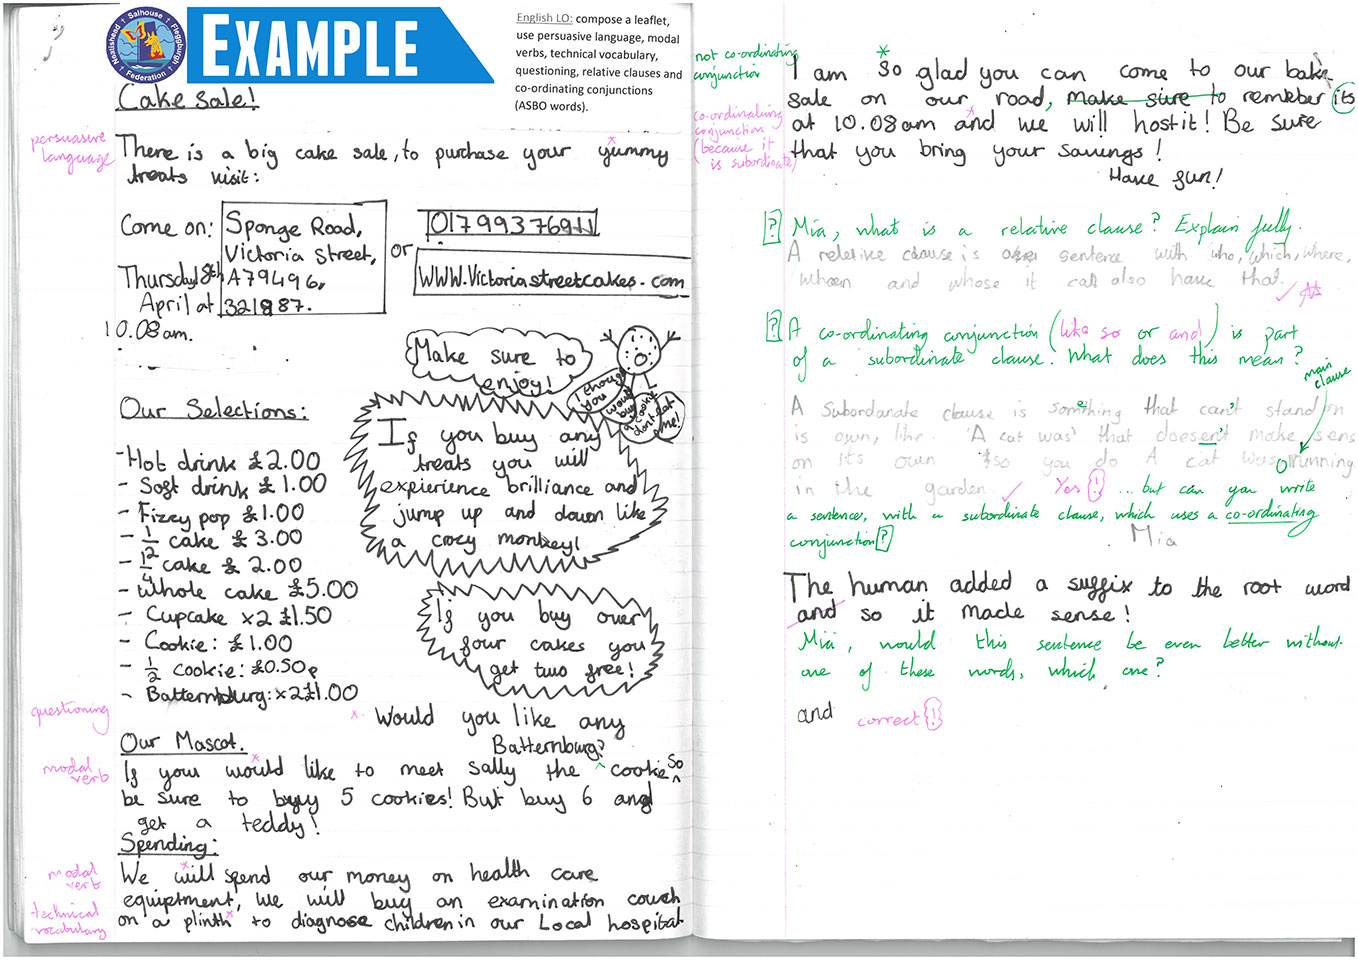 Neatishead Salhouse Fleggburgh
Federation
EXAMPLE
English LO: compose a leaflet,
use persuasive language, modal
verbs, technical vocabulary,
questioning, relative clauses and
co-ordinating conjunctions
(ASBO words).
Cake Sale!
persuasive
language
There is a big cake sale, to purchase your yummy
treats visit:
Come on:
Thursday 8th
April at
10.08am.
Sponge Road,
Victoria Street,
A79496,
or
WWW.Victoriastreetcakes.com
Make sure to
enjoy!
I though
you
would
buy
a cookie
dont eat
me!
Our Selections:
- Hot drink £2.00
- Soft drink £1.00
- Fizzy pop £1.00
- 1/2 cake £3.00
- 1/4 cake £2.00
- Whole cake £5.00
- Cupcake x2 £1.50
- Cookie: £1.00
- 1/2 cookie: £0.50p
- Batternburg: x2 £1.00
If you buy any
treats you will
expierience brilliance and
jump up and down like
a crazy monkey!
If you buy over
four cakes you
get two free!
questioning
Would you like any
Batternburg?
Our Mascot.
modal
verb
If you would like to meet Sally the cookie so
be sure to buy 5 cookies! But buy 6 and
get a teddy!
Spending:
modal
verb
We will spend our money on health care
equiptment, we will buy an examination couch
technical
vocabulary
on a plinth to diagnose children in our Local hospital
not co-ordinating
conjunction
co-ordinating
conjunction
(because it
is subordinate)
I am so glad you can come to our bake
sale on our road, make sure to remkber its
at 10.08am and we will host it! Be sure
that you bring your savings!
Have fun!
? Mia, what is a relative clause? Explain fully.
A relative clause is a sentence with who, which, where,
when and whose it can also have that.
? A co-ordinating conjunction (like so or and) is part
of a subordinate clause. What does this mean?
main
clause
A subordanate clause is something that can't stand on
is own, like. 'A cat was' that doesen't make sens
on its own so you do A cat was running
in the garden Yes! ...but can you write
a sentence, with a subordinate clause, which uses a co-ordinating
conjunction?
Mia
The human added a suffix to the root word
and so it made sense!
Mia, would this sentence be even better without
one of these words, which one?
and correct!